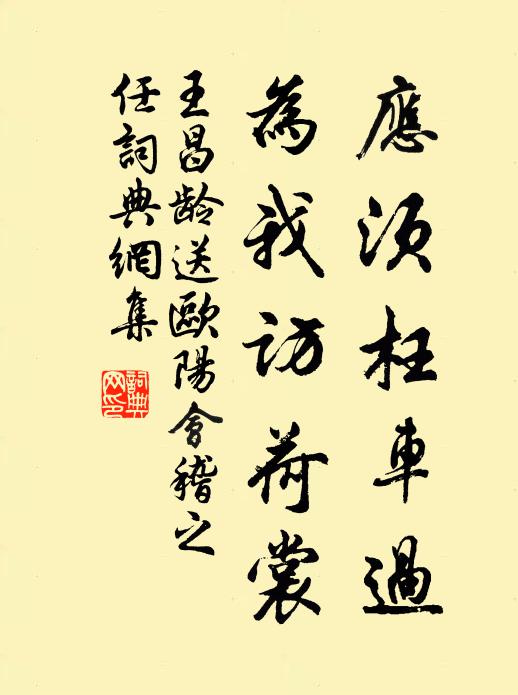 應須枉車過
為我訪荷裳
王昌齡送歐陽會稽之
任詞典網集
詞典
网印